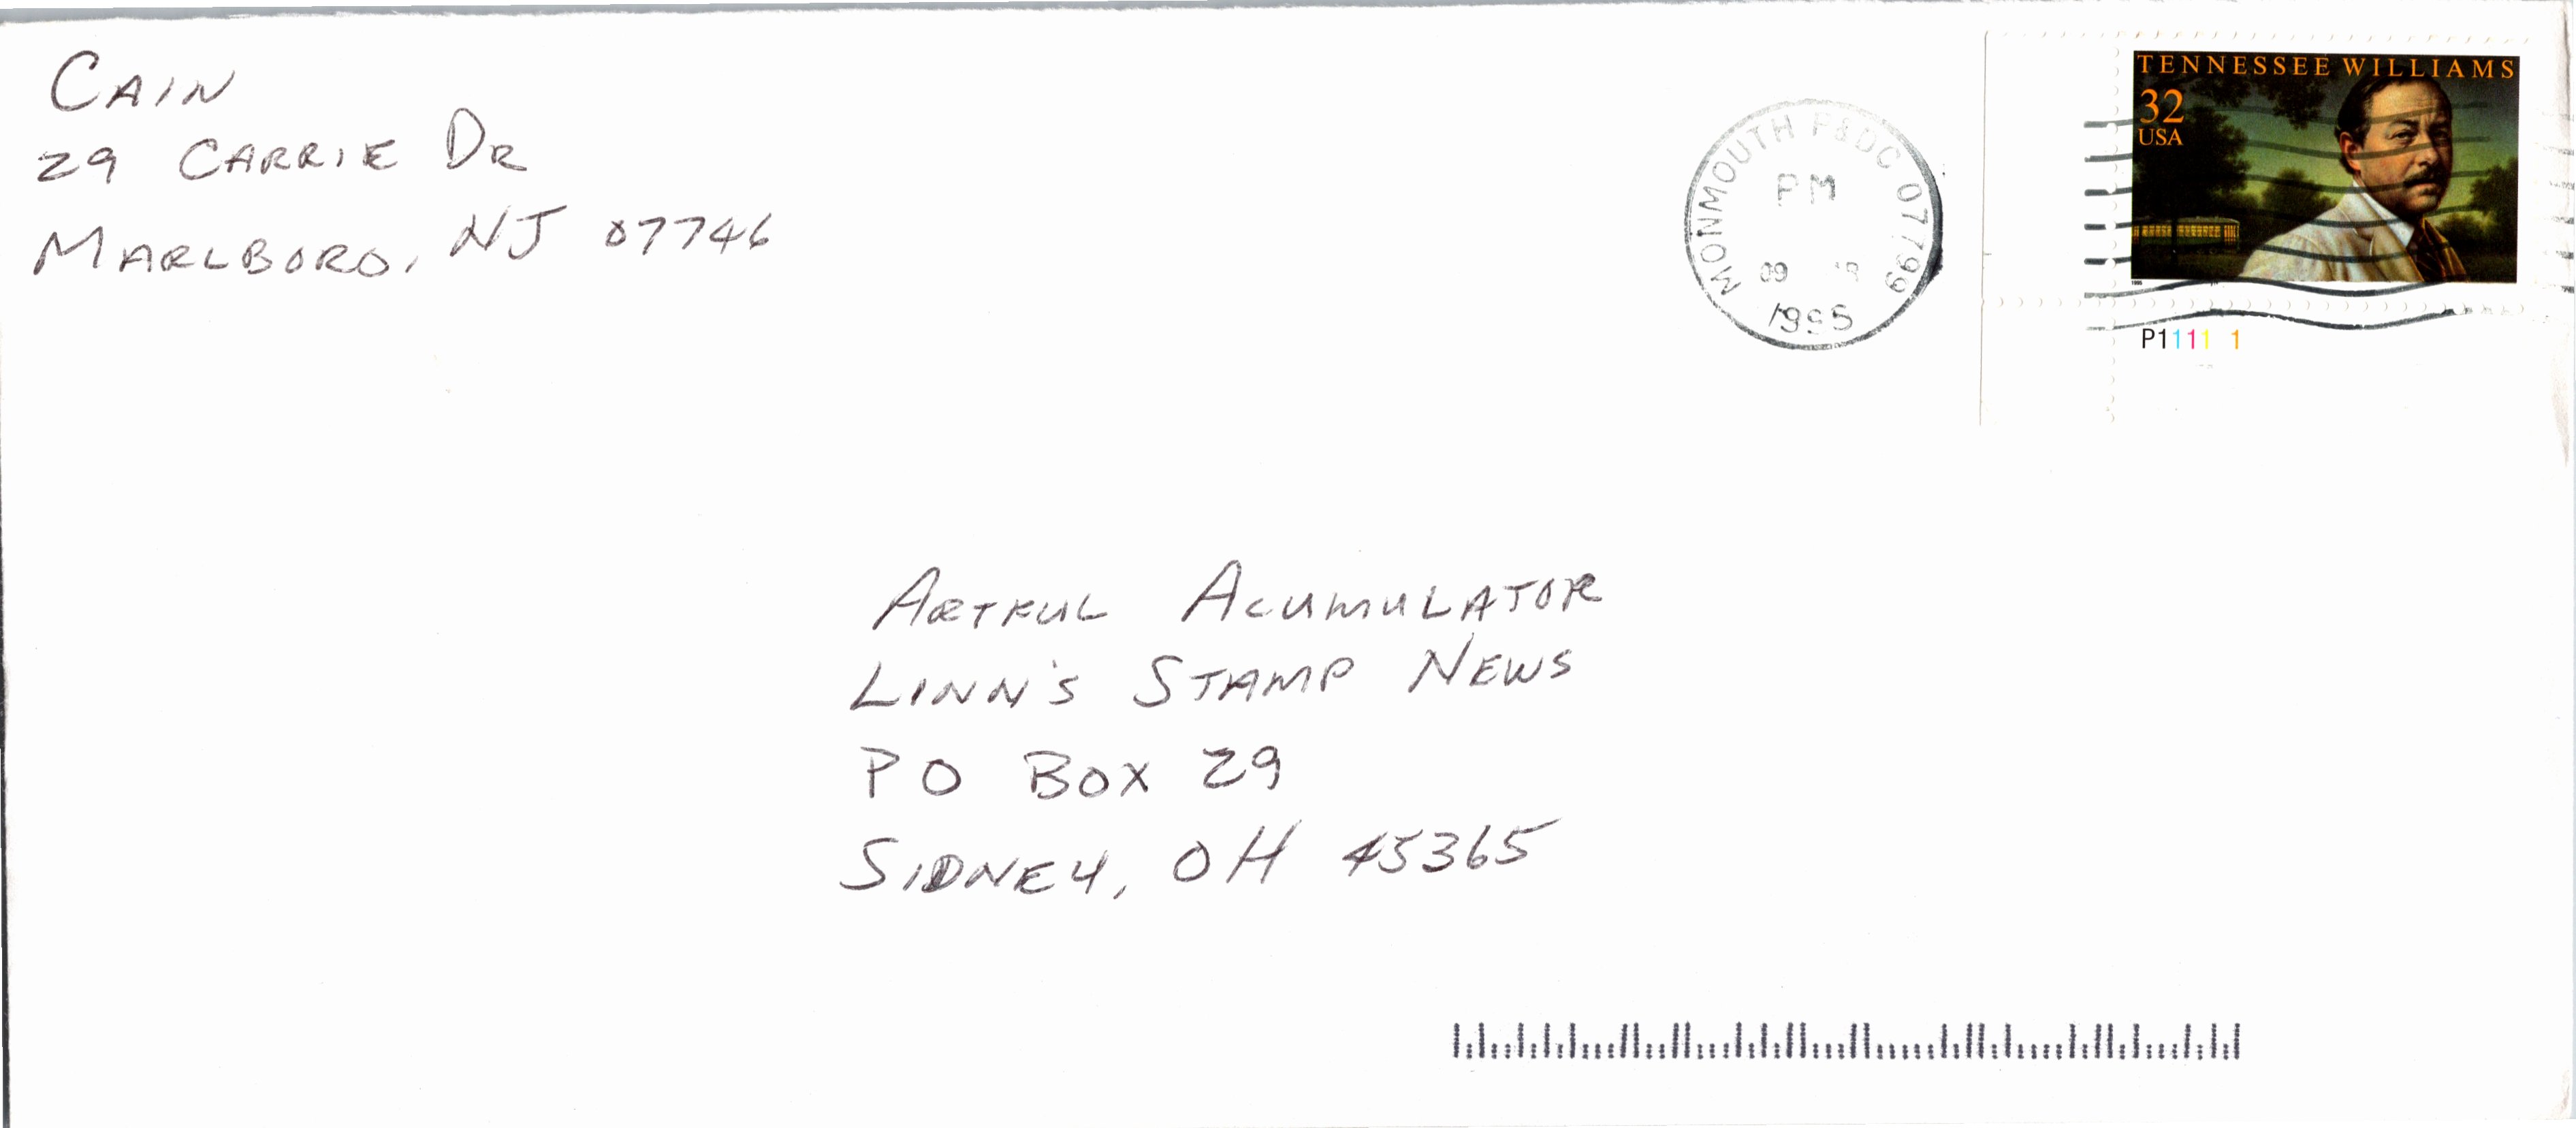 CAIN
29 CARRIE DR
MARLBORO, NJ 07746
MONMOUTH P&DC 07799
PM
09
1995
TENNESSEE WILLIAMS
32
USA
1995
P1111 1
ARTFUL ACUMULATOR
LINN'S STAMP NEWS
PO BOX 29
SIDNEY, OH 45365